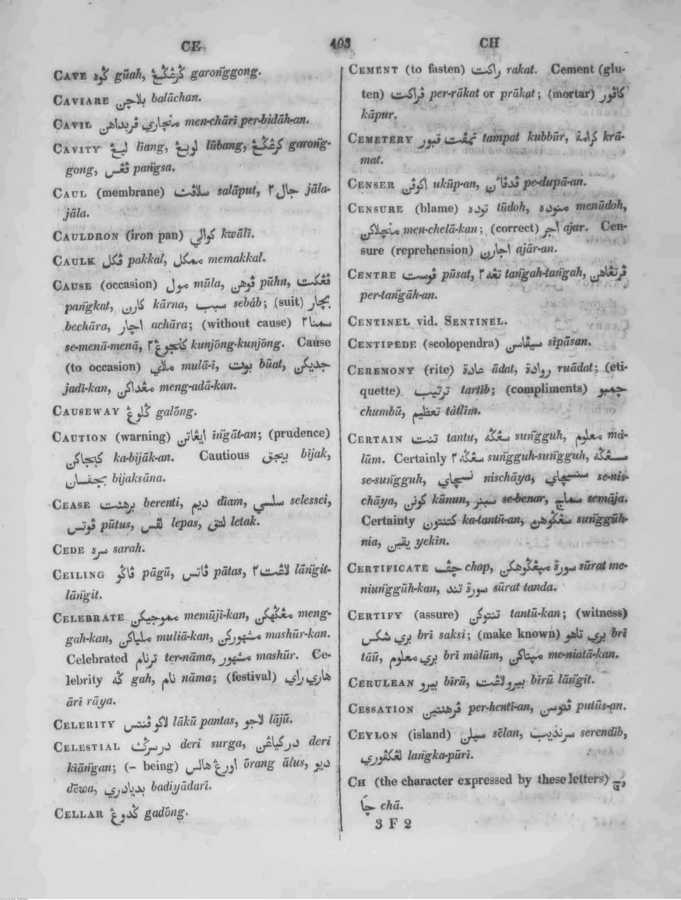 CE
403
CH
CAVE گوه gūah, گرڠگڠ garong̃gong.
CAVIARE بلاچن balāchan.
CAVIL منچاري ڤربداهن men-chāri per-bidāh-an.
CAVITY ليڠ liang, لوبڠ lūbang, گرڠگڠ garong̃-
gong, ڤڠس pang̃sa.
CAUL (membrane) سلاڤت salāput, جال٢ jāla-
jāla.
CAULDRON (iron pan) كوالي kwālī.
CAULK ڤكل pakkal, ممكل memakkal.
CAUSE (occasion) مول mūla, ڤوهن pūhn, ڤڠكت
pang̃kat, كارن kārna, سبب sebáb; (suit) بچار
bechāra, اچار achāra; (without cause) سمنا٢
se-menā-menā, كنجوڠ٢ kunjōng-kunjōng. Cause
(to occasion) ملاي mulā-i, بوت būat, جديكن
jadi-kan, مغداكن meng-adā-kan.
CAUSEWAY گلوڠ galōng.
CAUTION (warning) ايڠاتن īng̃āt-an; (prudence)
كبجاكن ka-bijāk-an. Cautious بيجق bijak,
بجقسان bijaksāna.
CEASE برهنت berenti, ديم dīam, سلسي selessei,
ڤوتس pūtus, لڤس lepas, لتق letak.
CEDE سره sarah.
CEILING ڤاڬو pāgū, ڤاتس pātas, لاڠت٢ lāng̃it-
lāng̃it.
CELEBRATE مموجيكن memūji-kan, مڠگهكن meng-
gah-kan, ملياكن muliā-kan, مشهوركن mashūr-kan.
Celebrated ترنام ter-nāma, مشهور mashūr. Ce-
lebrity گه gah, نام nāma; (festival) هاري راي
āri rāya.
CELERITY لاكو ڤنتس lākū pantas, لاجو lājū.
CELESTIAL درسرڬ deri surga, دركياڠن deri
kiāng̃an; (– being) اورڠ هالس ōrang ālus, ديو
dēwa, بديادري badiyādarī.
CELLAR گدوڠ gadōng.
CEMENT (to fasten) راكت rakat. Cement (glu-
ten) ڤراكت per-rākat or prākat; (mortar) كاڤور
kāpur.
CEMETERY تمڤت قبور tampat kubbūr, كرامة krā-
mat.
CENSER اكوڤن ukūp-an, ڤدڤان pe-dupā-an.
CENSURE (blame) توده tūdoh, منوده menūdoh,
منچلاكن men-chelā-kan; (correct) اجر ajar. Cen-
sure (reprehension) اجارن ajār-an.
CENTRE ڤوست pūsat, تڠه٢ tang̃ah-tang̃ah, ڤرتڠاهن
per-tang̃āh-an.
CENTINEL vid. SENTINEL.
CENTIPEDE (scolopendra) سيڤاسن sīpāsan.
CEREMONY (rite) عادة ādat, روادة ruādat; (eti-
quette) ترتيب tartīb; (compliments) چمبو
chumbū, تعظيم tātlīm.
CERTAIN تنت tantu, سڠگه sung̃guh, معلوم mā-
lūm. Certainly سڠگه٢ sung̃guh-sung̃guh, سسڠگه
se-sung̃guh, نسچاي nischāya, سنسچاي se-nis-
chāya, كونن kūnun, سبنر se-benar, سماج semāja.
Certainty كتنتون ka-tantū-an, سڠگوهن sung̃gūh-
nia, يقين yekin.
CERTIFICATE چڤ chap, سورة مڽڠگوهكن sūrat me-
niung̃gūh-kan, سورة تند sūrat tanda.
CERTIFY (assure) تنتوكن tantū-kan; (witness)
بري شكس brī saksi; (make known) بري تاهو brī
tāū, بري معلوم brī mālūm, مڽتاكن me-niatā-kan.
CERULEAN بيرو bīrū, بيرو لاڠت bīrū lāng̃it.
CESSATION ڤرهنتين per-henti-an, ڤتوسن putūs-an.
CEYLON (island) سيلن sēlan, سرنديب serendib,
لڠكڤوري lang̃ka-pūri.
CH (the character expressed by these letters) چ,
چا chā.
3 F 2